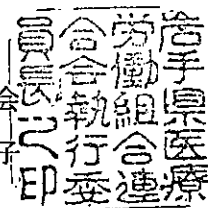 岩手県医療
労働組合連
合会執行委
員長之印
会子